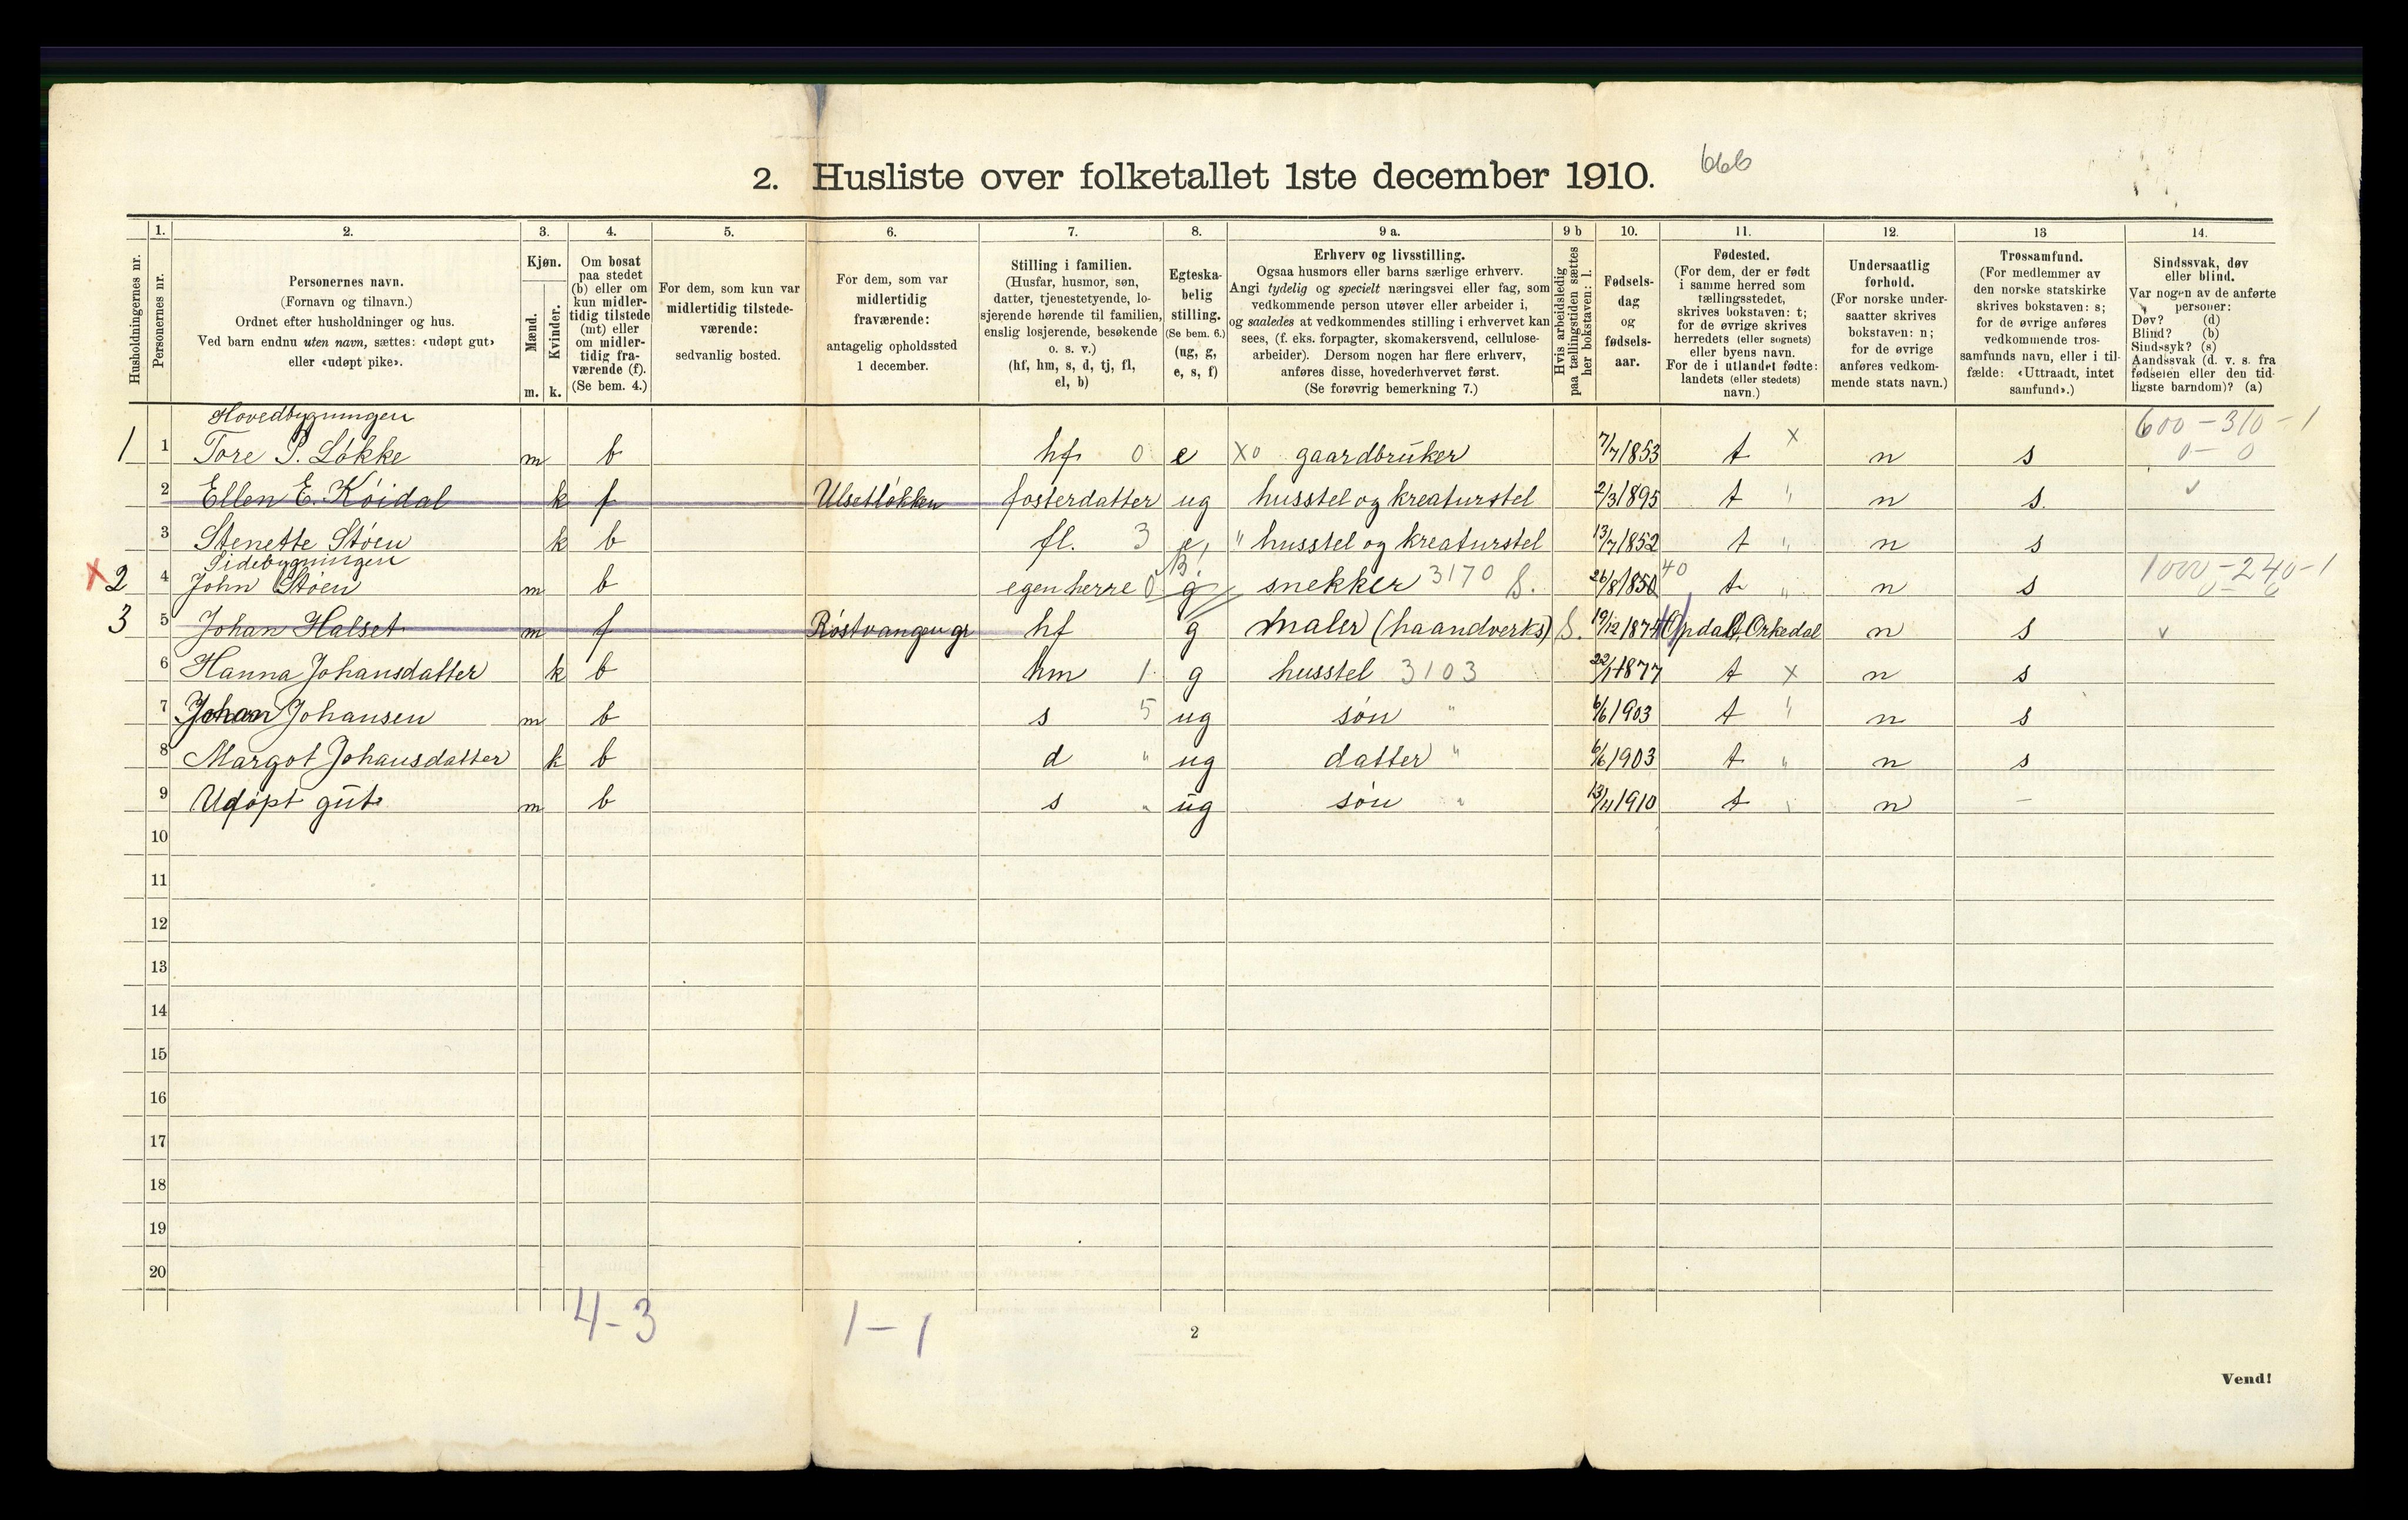 2. Husliste over folketallet 1ste december 1910. 666
Husholdningernes nr.
1.
Personernes nr.
2.
Personernes navn.
(Fornavn og tilnavn.)
Ordnet efter husholdninger og hus.
Ved barn endnu uten navn, sættes: «udøpt gut»
eller «udøpt pike».
3.
Kjøn.
Mænd.
m.
Kvinder.
k.
4.
Om bosat
paa stedet
(b) eller om
kun midler-
tidig tilstede
(mt) eller
om midler-
tidig fra-
værende (f).
(Se bem. 4.)
5.
For dem, som kun var
midlertidig tilstede-
værende:
sedvanlig bosted.
6.
For dem, som var
midlertidig
fraværende:
antagelig opholdssted
1 december.
7.
Stilling i familien.
(Husfar, husmor, søn,
datter, tjenestetyende, lo-
sjerende hørende til familien,
enslig losjerende, besøkende
o. s. v.)
(hf, hm, s, d, tj, fl,
el, b)
8.
Egteska-
belig
stilling.
(Se bem. 6.)
(ug, g,
e, s, f)
9 a.
Erhverv og livsstilling.
Ogsaa husmors eller barns særlige erhverv.
Angi tydelig og specielt næringsvei eller fag, som
vedkommende person utøver eller arbeider i,
og saaledes at vedkommendes stilling i erhvervet kan
sees, (f. eks. forpagter, skomakersvend, cellulose-
arbeider). Dersom nogen har flere erhverv,
anføres disse, hovederhvervet først.
(Se forøvrig bemerkning 7.)
9 b
Hvis arbeidsledig
paa tællingstiden sættes
her bokstaven: l.
10.
Fødsels-
dag
og
fødsels-
aar.
11.
Fødested.
(For dem, der er født
i samme herred som
tællingsstedet,
skrives bokstaven: t;
for de øvrige skrives
herredets (eller sognets)
eller byens navn.
For de i utlandet fødte:
landets (eller stedets)
navn.)
12.
Undersaatlig
forhold.
(For norske under-
saatter skrives
bokstaven: n;
for de øvrige
anføres vedkom-
mende stats navn.)
13
Trossamfund.
(For medlemmer av
den norske statskirke
skrives bokstaven: s;
for de øvrige anføres
vedkommende tros-
samfunds navn, eller i til-
fælde: «Uttraadt, intet
samfund».)
14.
Sindssvak, døv
eller blind.
Var nogen av de anførte
personer:
Døv? (d)
Blind? (b)
Sindssyk? (s)
Aandssvak (d. v. s. fra
fødselen eller den tid-
ligste barndom)? (a)
Hovedbygningen
600-310-1
1 1 Tore P. Løkke m b hf 0 e x0 gaardbruker 7/7 1853 t x n s 0-0
2 Ellen E. Køidal k f Ulsetløkken fosterdatter ug husstel og kreaturstel 2/3 1895 t " n s.
3 Stenette Støen k b fl. 3 e, " husstel og kreaturstel 13/7 1852 t " n s
Sidebygningen
1000-240-1
x 2 4 John Støen m b egen herre 0 g snekker 3170 S. 26/8 1850 40 t " n s
3 5 Johan Halset m f Røstvangen gr hf g maler (haandverks) S. 19/12 1874 Opdal, Orkedal n s v
6 Hanna Johansdatter k b hm 1 g husstel 3103 22/1 1877 t x n s
7 Johan Johansen m b s 5 ug søn " 6/6 1903 t " n s
8 Margot Johansdatter k b d " ug datter " 6/6 1903 t " n s
9 Udøpt gut m b s " ug søn " 13/11 1910 t " n —
10
11
12
13
14
15
16
17
18
19
20
4-3 1-1
2
Vend!